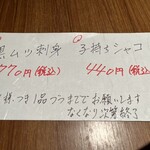 黒ムツ刺身
770円(税込)
子持ちシャコ
440円(税込)
様につき1品づつまででお願いします
なくなり次第終了